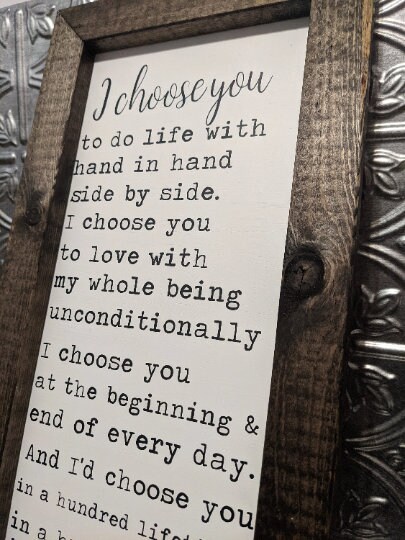 I choose you
to do life with
hand in hand
side by side.
I choose you
to love with
my whole being
unconditionally
I choose you
at the beginning &
end of every day.
And I'd choose you
in a hundred
in a